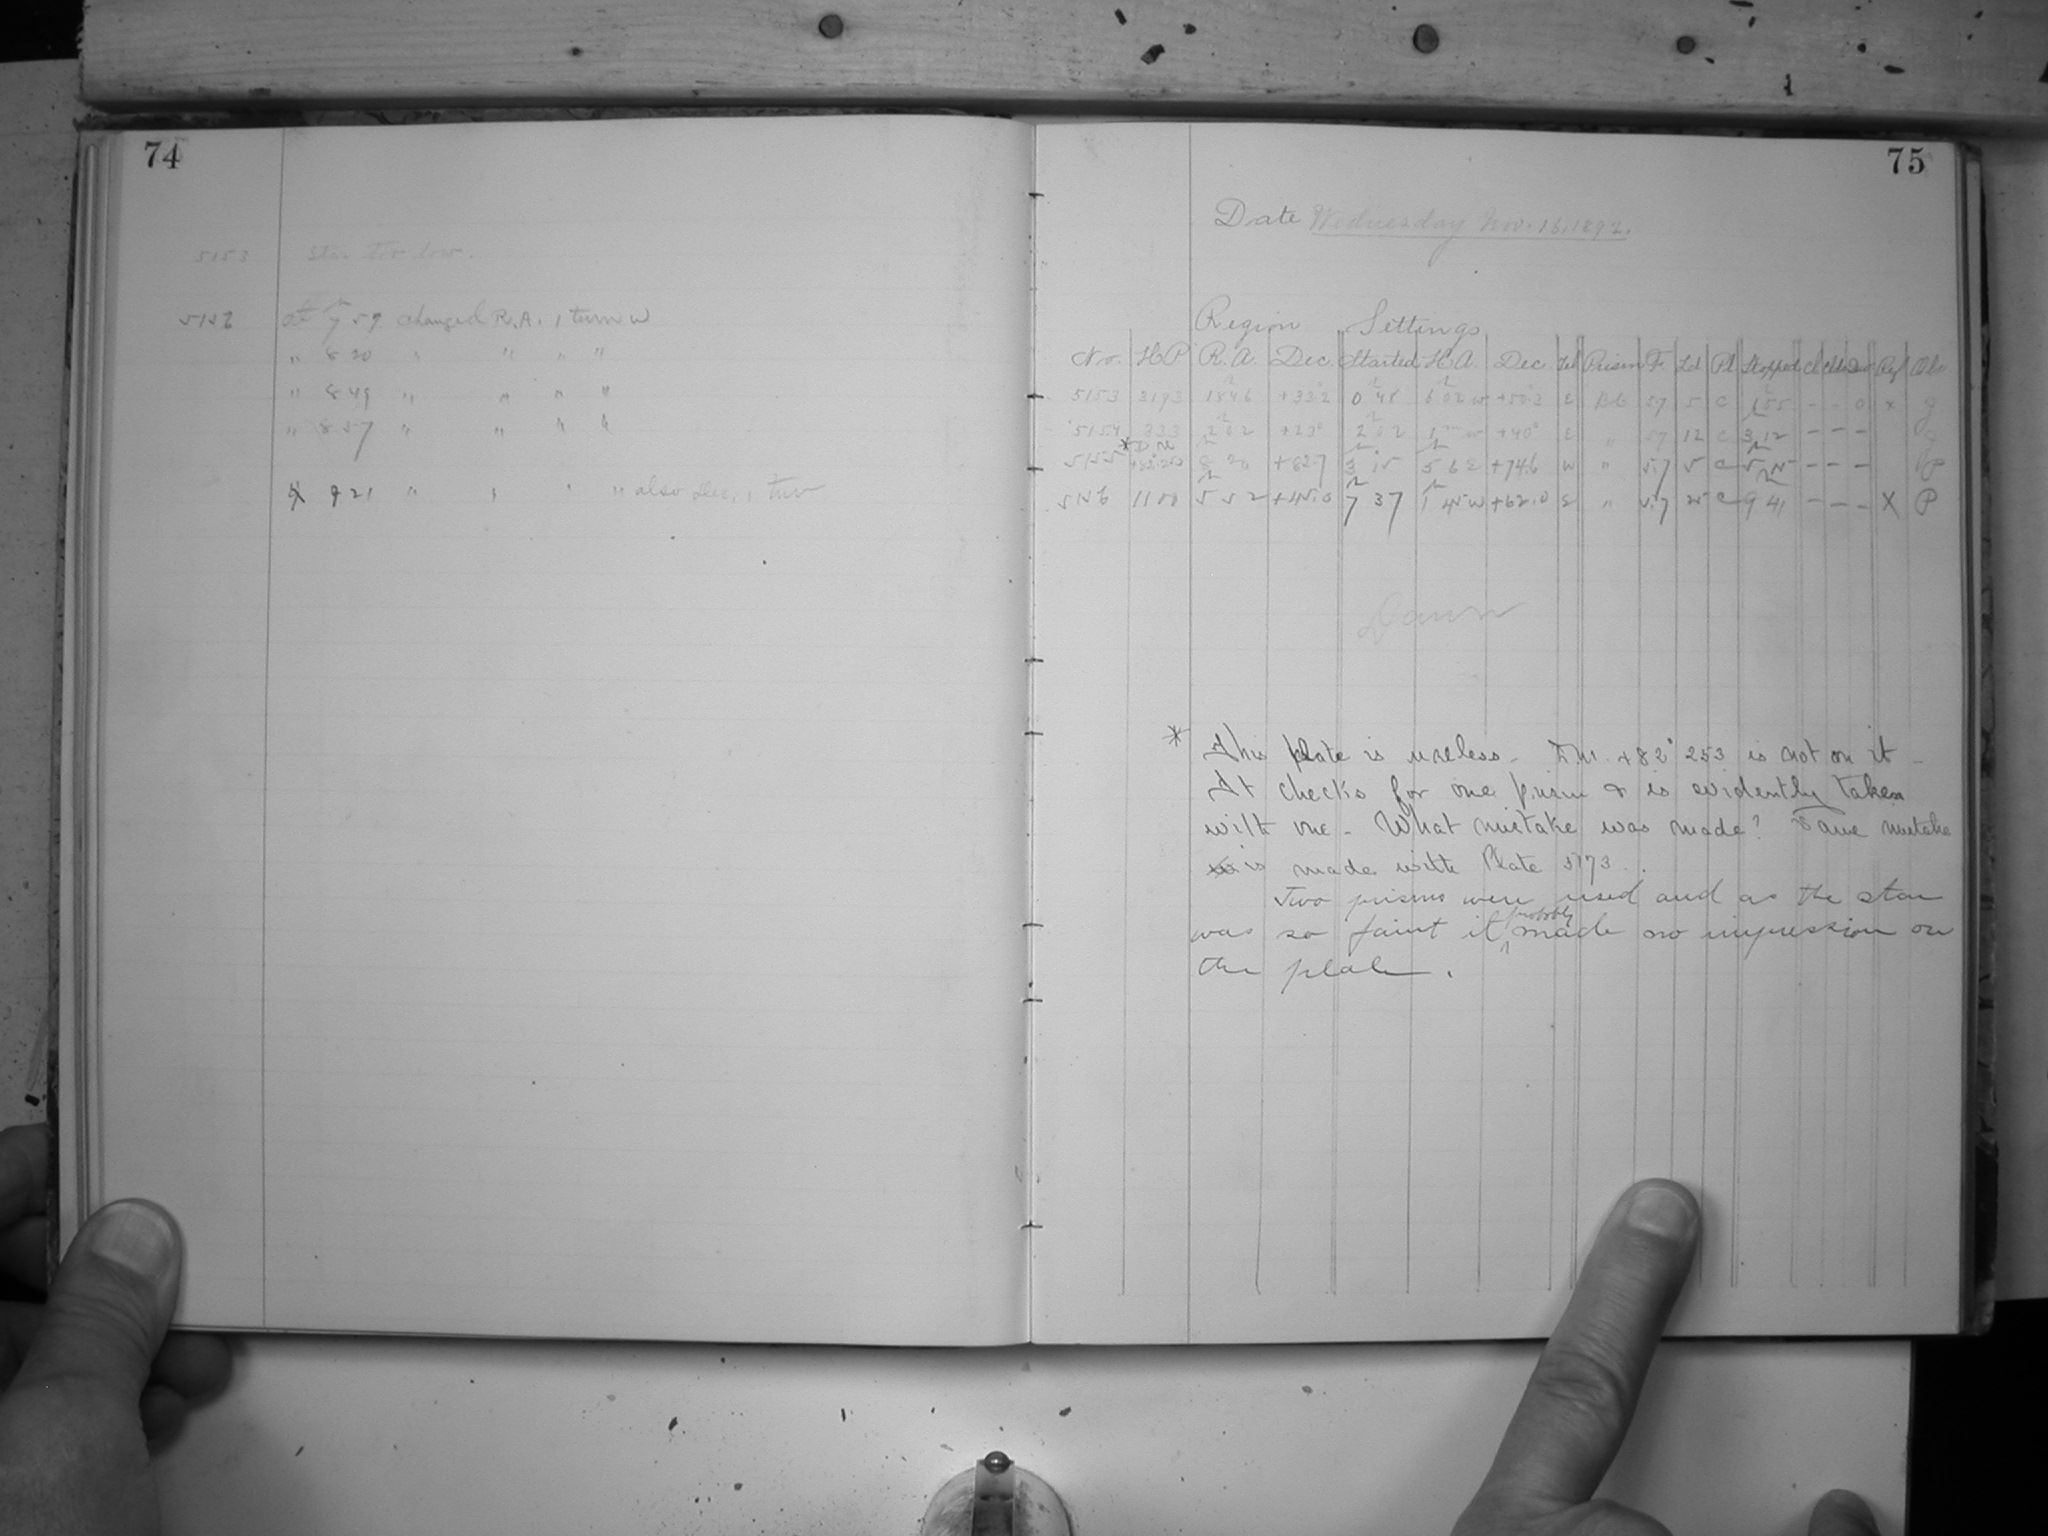 74
5153 Star too low.
5156 at 7 59 changed R.A. 1 turn W
" 8 20 " " " "
" 8 49 " " " "
" 8 57 " " " "
9 21 " " " " also Dec. 1 turn
75
Date Wednesday Nov. 16, 1892.
Region Settings
No. H P R. A. Dec. Started H A. Dec. Tel Prism F. Ld Pl Stopped Cl Ref Obs
5153 3193 18 46 +33.2 0 48 6 02 w +50.3 E Bb 57 5 C 1 55 - - 0 x g
5154 333 2 02 +23° 2 02 +40° E " 57 12 C 3 12 - - - g
* D M
5155 +82°.253 8 20 +82.7 3 15 5 6 E +74.6 W " 5.7 5 C - - - P
5156 1100 5 52 +45.0 7 37 1 45 W +62.0 E " 5.7 C 9 41 - - - X P
Dawn
* This plate is useless - D.M. +82° 253 is not on it -
It checks for one prism & is evidently taken
with one - What mistake was made? Same mistake
is made with Plate 5173.
Two prisms were used and as the star
was so faint it probably made no impression on
the plate.